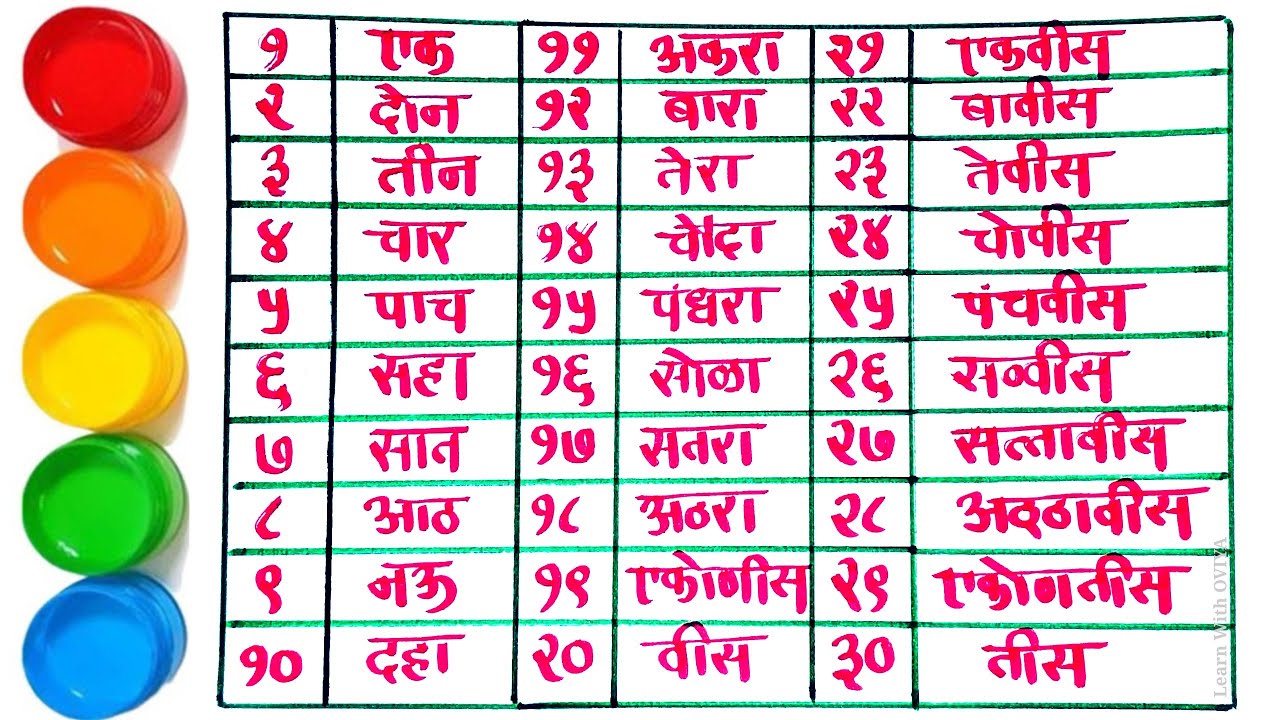 १ एक ११ अकरा २१ एकवीस
२ दोन १२ बारा २२ बावीस
३ तीन १३ तेरा २३ तेवीस
४ चार १४ चौदा २४ चोवीस
५ पाच १५ पंधरा २५ पंचवीस
६ सहा १६ सोळा २६ सव्वीस
७ सात १७ सतरा २७ सत्तावीस
८ आठ १८ अठरा २८ अठ्ठावीस
९ नऊ १९ एकोणीस २९ एकोणतीस
१० दहा २० वीस ३० तीस
Learn With OVIYA